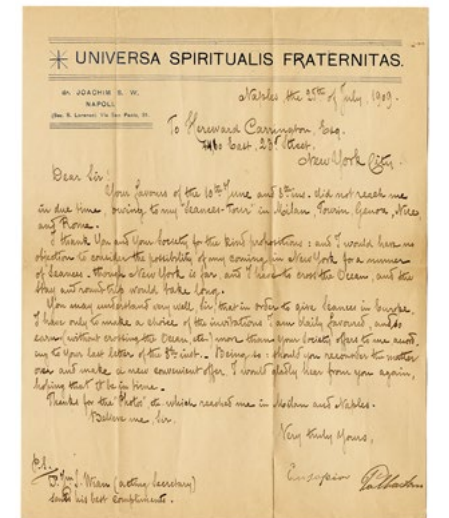 UNIVERSA SPIRITUALIS FRATERNITAS.
JOACHIM S. W.
NAPOLI.
(Sez. S. Lorenzo) Via San Paolo,
Naples the 25th of July, 1909.
To Hereward Carrington, Esq.
East, 23d Street.
New York City.
Dear Sir!
Your favours of the 10th June and 8th ins. did not reach me
in due time, owing to my "Seances-Tour" in Milan, Turin, Genoa, Nice,
and Rome.
I thank You and Your Society for the kind propositions: and I would have no
objection to consider the possibility of my coming in New York for a number
of Seances. though New York is far, and I have to cross the Ocean, and the
stay and round trip would take long.
You may understand very well, Sir, that in order to give Seances in Europe
I have only to make a choice of the invitations I am daily favored, and
earn (without crossing the Ocean, etc.) more than Your Society offers to me accord,
ing to Your last letter of the 8th inst. Being so, should you reconsider the matter
over and make a new convenient offer, I would gladly hear from you again,
hoping that it be in time.
Thanks for the "Photos" etc. which reached me in Milan and Naples.
Believe me, Sir,
Very truly Yours,
Eusapia Palladino
P.S.
(acting Secretary)
sends his best compliments.